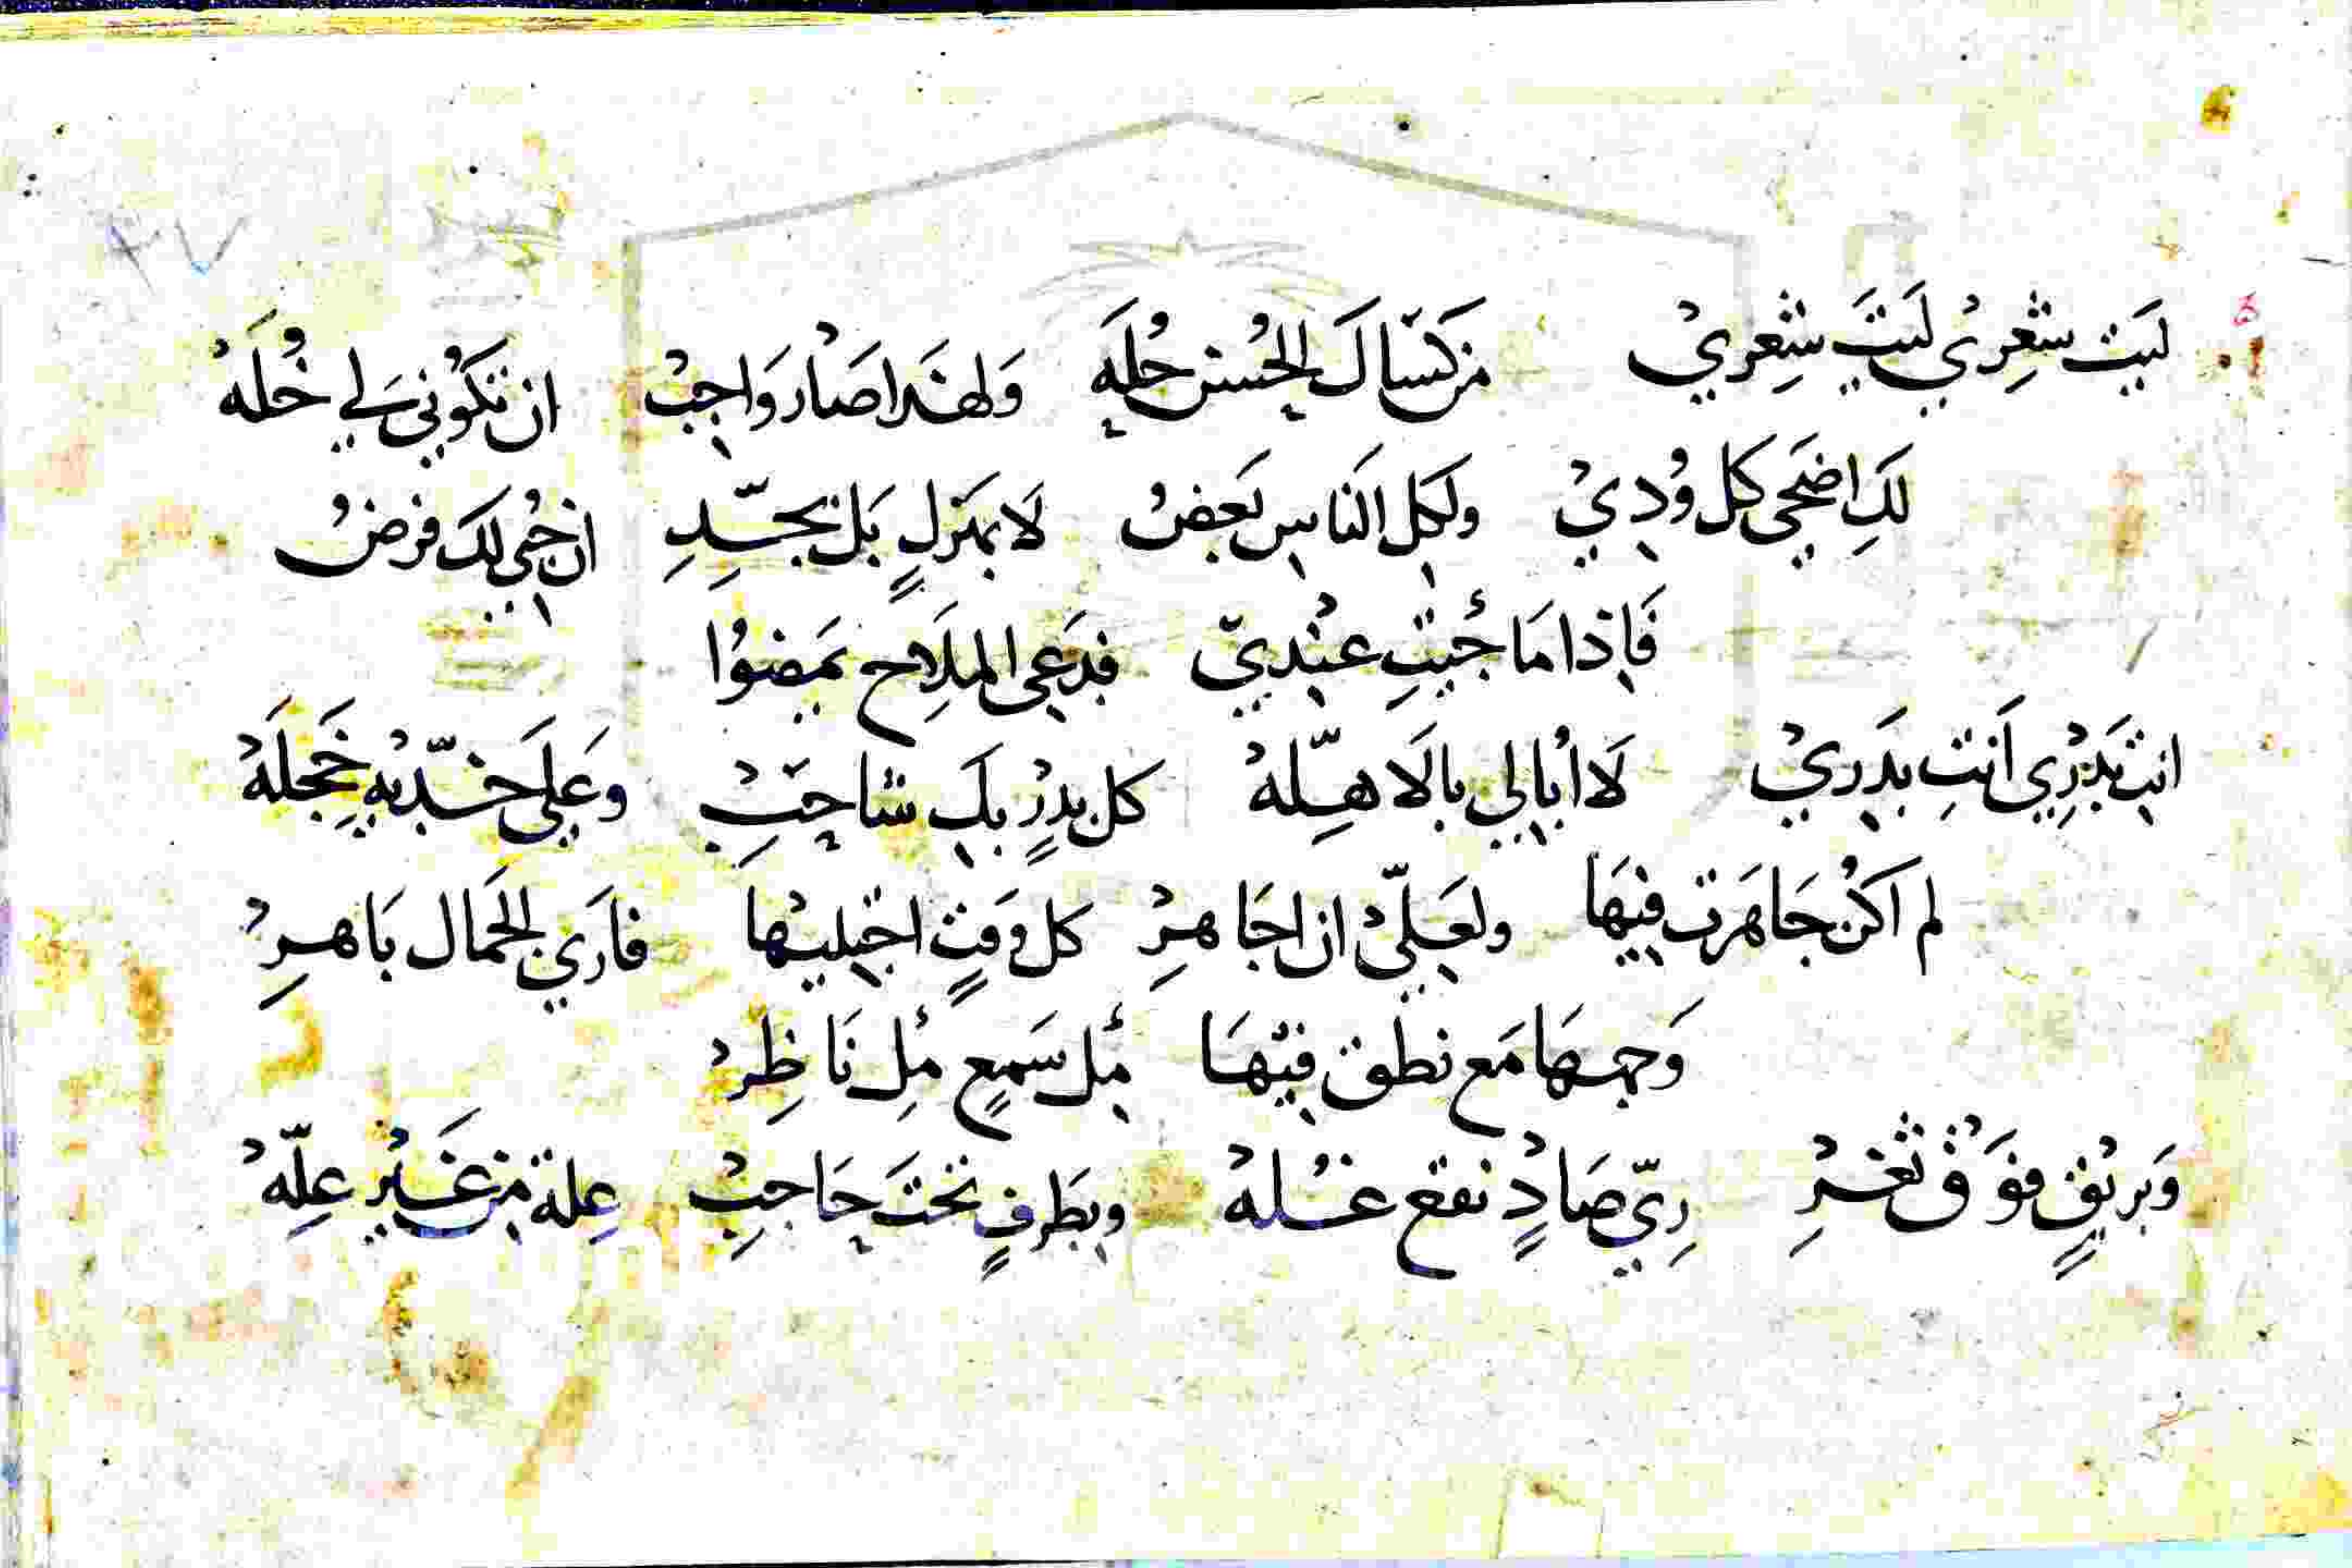 لَيت شعِريْ لَيتَ شِعريْ من كَسّاكَ الحُسن حُلَه وَلهذا صَار وَاجبْ ان تكوُني لي خُلَهْ
لَكِ اضحَى كل وُديْ ولكل النَاس بَعضْ لَا بهَزلٍ بَل بجّدِ ان حُبي لك فرضْ
فَاِذا مَا جُئتِ عنْديّ فدَعى الملَاح يمَضوُا
انت بَدْرِي اَنتِ بدَريْ لَا اُبالي بالَاهِلّهْ كل بدرٍ بكَ شاحبْ وعَلىَ خدّيه خَجلَهْ
لم اكنْ جَاهَرت فيهَا ولعَلّيْ ان اجَاهرِ كل وَقتٍ اجتليهْا فارَي الجَمال بَاهرِ
وَجهها مَع نطق فيْهَا مُل سَمعٍ مُل نَاظِرْ
وَبريْقٍ فوَقْ ثغرْ ريّ صَادٍ نقع غُلهْ وبطَرفٍ تحَتَ حَاجبْ عِلة من غَيرِ عِلّهْ